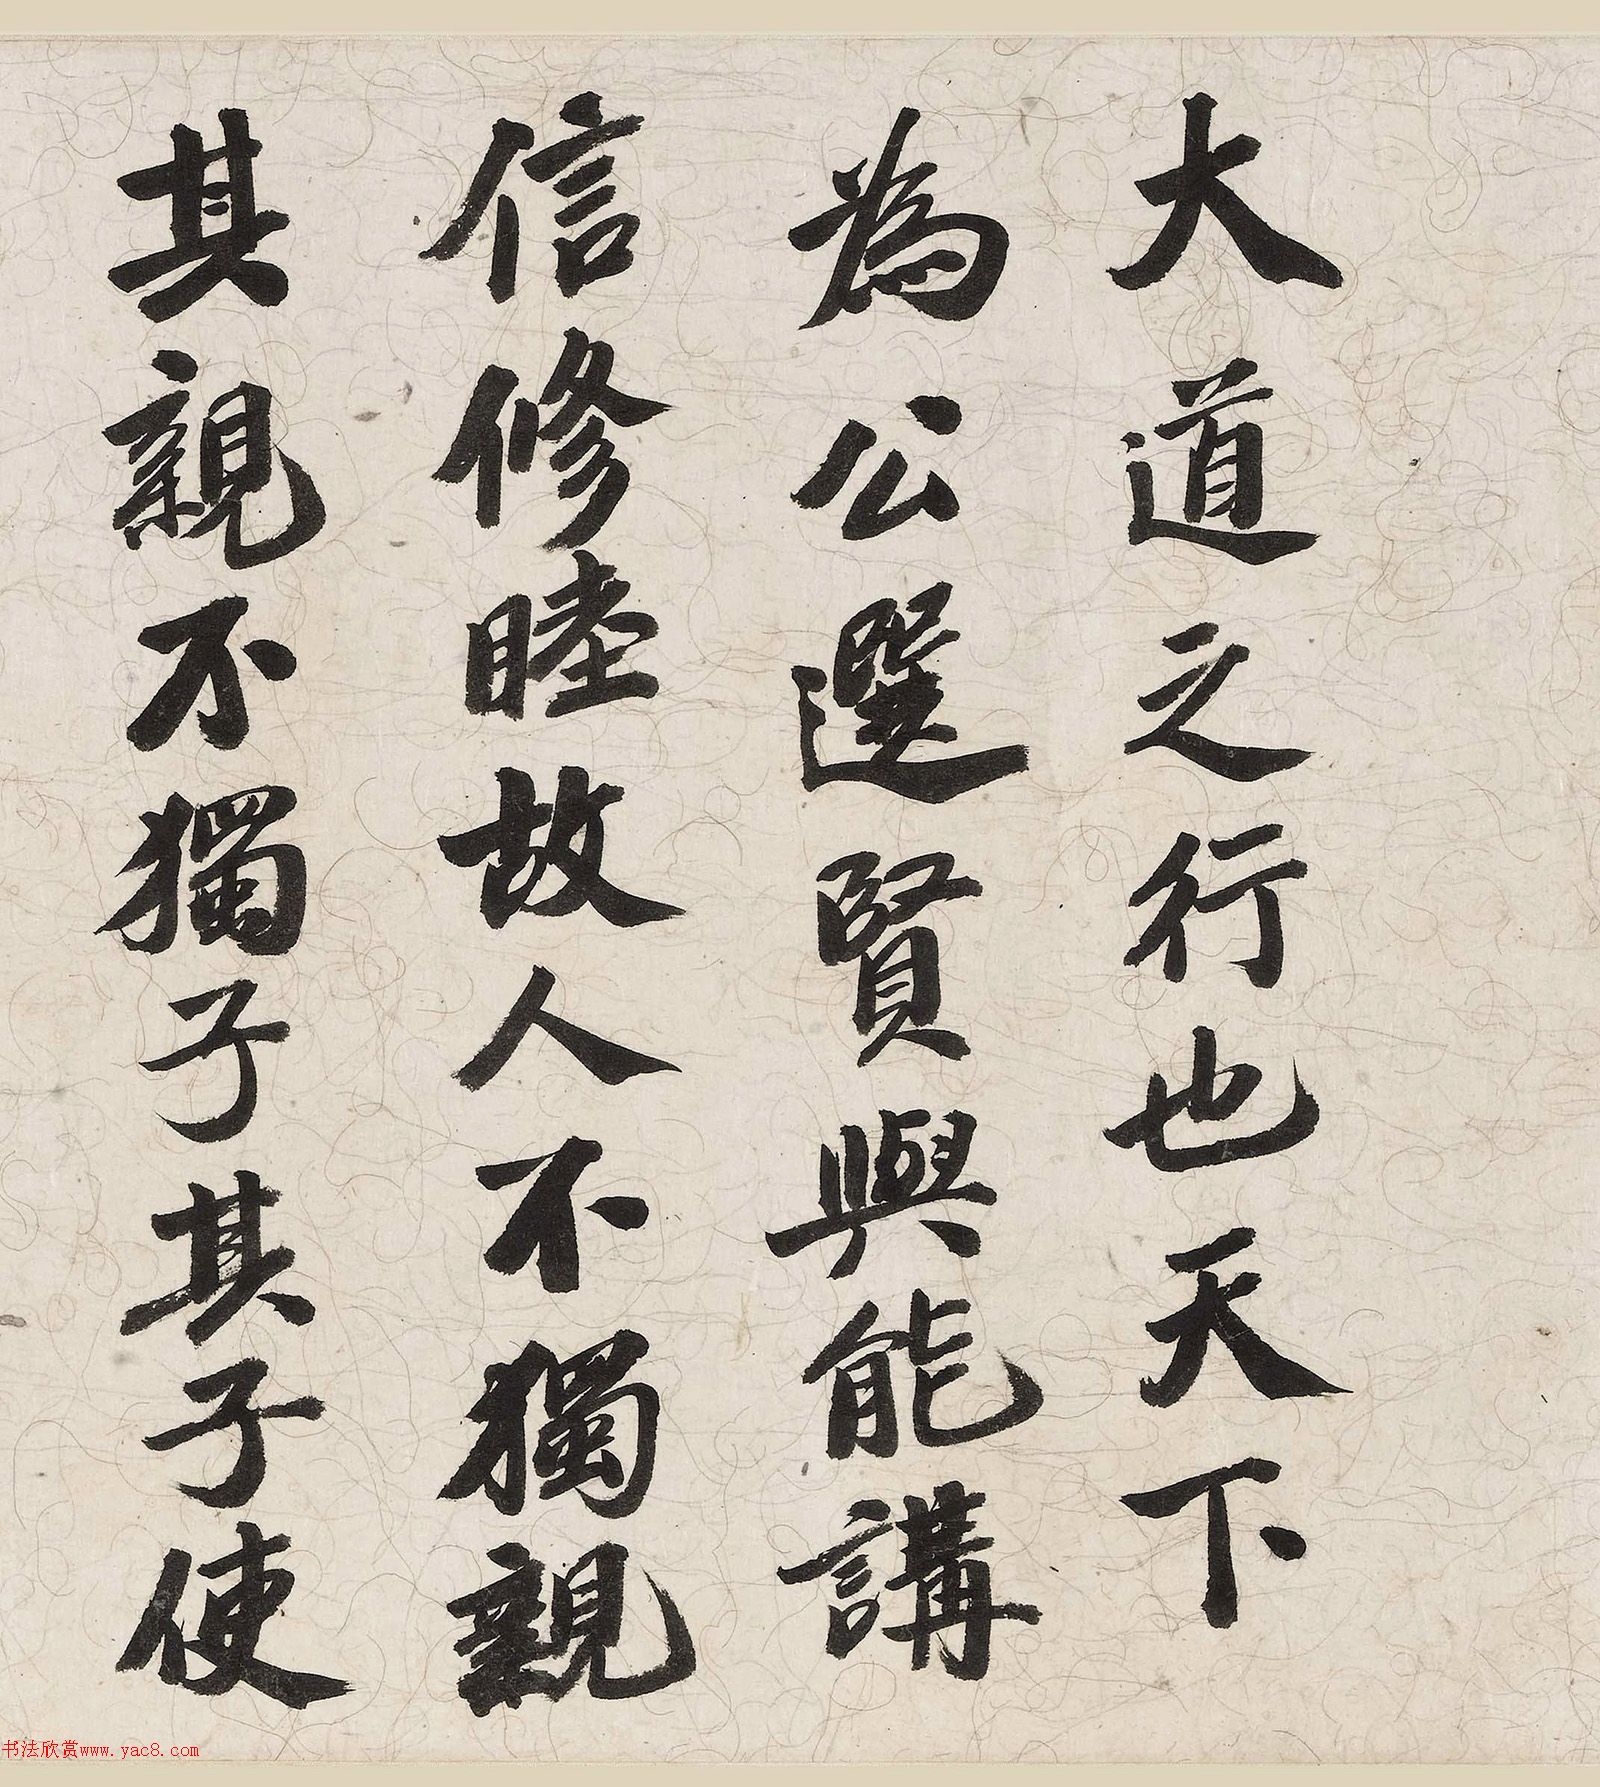 大道之行也天下
為公選賢與能講
信修睦故人不獨親
其親不獨子其子使
书法欣赏www.yac8.com